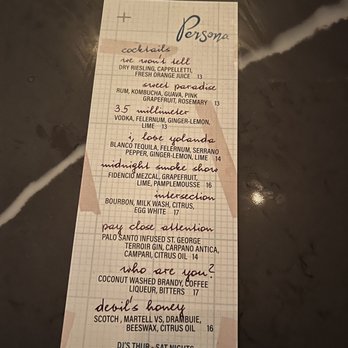 Persona
cocktails
we won't tell
DRY RIESLING, CAPPELLETTI,
FRESH ORANGE JUICE 13
sweet paradise
RUM, KOMBUCHA, GUAVA, PINK
GRAPEFRUIT, ROSEMARY 13
35 millimeter
VODKA, FELERNUM, GINGER-LEMON,
LIME 13
i, love yolanda
BLANCO TEQUILA, FELERNUM, SERRANO
PEPPER, GINGER-LEMON, LIME 14
midnight smoke show
FIDENCIO MEZCAL, GRAPEFRUIT,
LIME, PAMPLEMOUSSE 16
intersection
BOURBON, MILK WASH, CITRUS,
EGG WHITE 17
pay close attention
PALO SANTO INFUSED ST. GEORGE
TERROIR GIN, CARPANO ANTICA,
CAMPARI, CITRUS OIL 14
who are you?
COCONUT WASHED BRANDY, COFFEE
LIQUEUR, BITTERS 17
devil's honey
SCOTCH , MARTELL VS, DRAMBUIE,
BEESWAX, CITRUS OIL 16
DJ'S THUR - SAT NIGHTS